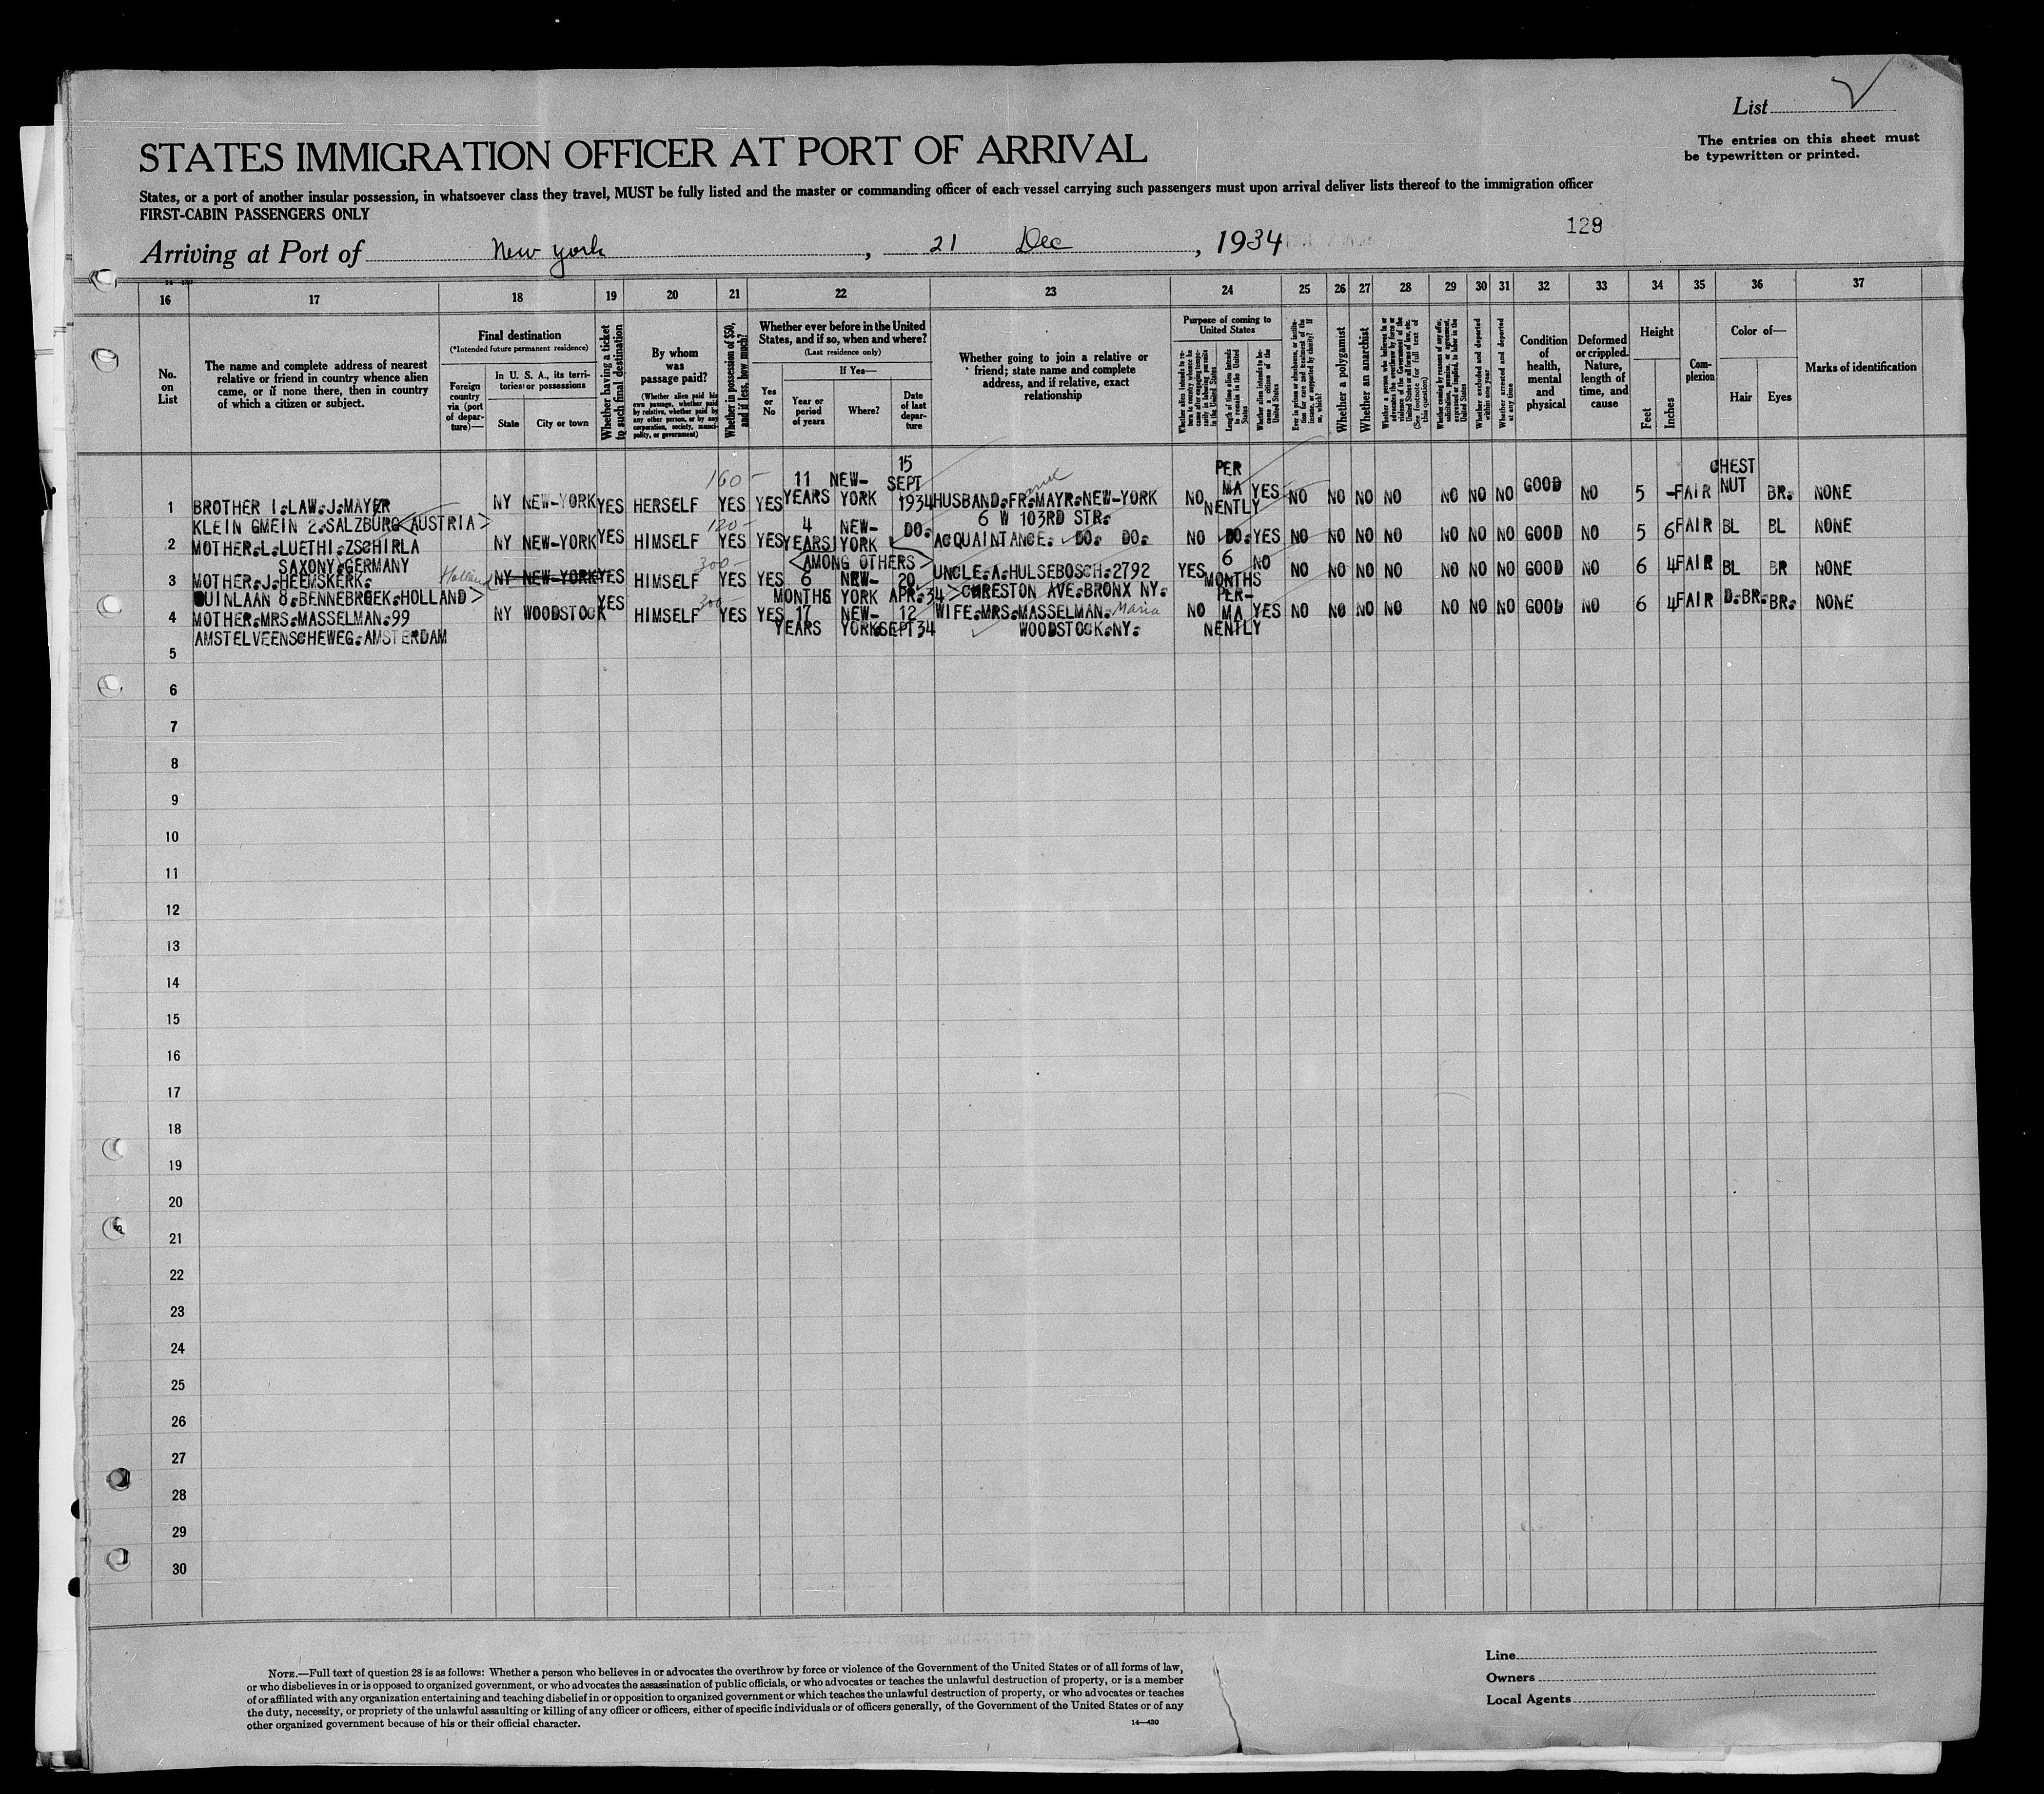 List
The entries on this sheet must
be typewritten or printed.
STATES IMMIGRATION OFFICER AT PORT OF ARRIVAL
States, or a port of another insular possession, in whatsoever class they travel, MUST be fully listed and the master or commanding officer of each vessel carrying such passengers must upon arrival deliver lists thereof to the immigration officer
FIRST-CABIN PASSENGERS ONLY
129
Arriving at Port of New york, 21 Dec, 1934
16 17 18 19 20 21 22 23 24 25 26 27 28 29 30 31 32 33 34 35 36 37
No. on List
The name and complete address of nearest
relative or friend in country whence alien
came, or if none there, then in country
of which a citizen or subject.
Final destination
(*Intended future permanent residence)
Foreign country via (port of departure)—
In U. S. A., its territories or possessions
State
City or town
Whether having a ticket to such final destination
By whom was passage paid?
(Whether alien paid his own passage, whether paid by relative, whether paid by any other person, or by any corporation, society, municipality, or government)
Whether in possession of $50, and if less, how much?
Whether ever before in the United States, and if so, when and where?
(Last residence only)
Yes or No
If Yes—
Year or period of years
Where?
Date of last departure
Whether going to join a relative or
friend; state name and complete
address, and if relative, exact
relationship
Purpose of coming to United States
Length of time alien intends to remain in the United States
Whether alien intends to become a citizen of the United States
Whether a polygamist
Whether an anarchist
Whether excluded and deported within one year
Whether arrested and deported at any time
Condition of health, mental and physical
Deformed or crippled. Nature, length of time, and cause
Height
Feet
Inches
Complexion
Color of—
Hair
Eyes
Marks of identification
1 BROTHER I.LAW.J.MAYER NY NEW-YORK YES HERSELF 160- YES YES 11 YEARS NEW-YORK 15 SEPT 1934 HUSBAND.FR.MAYR.NEW-YORK NO PERMANENTLY YES NO NO NO NO NO NO NO GOOD NO 5 - FAIR CHESTNUT BR. NONE
KLEIN GMEIN 2.SALZBURG<AUSTRIA> 6 W 103RD STR.
2 MOTHER.L.LUETHI.ZSCHIRLA NY NEW-YORK YES HIMSELF 120- YES YES 4 YEARS NEW-YORK DO. ACQUAINTANCE. DO. DO. NO DO. YES NO NO NO NO NO NO NO GOOD NO 5 6 FAIR BL BL NONE
SAXONY.GERMANY <AMONG OTHERS>
3 MOTHER.J.HEEMSKERK. Holland NY NEW-YORK YES HIMSELF 300- YES YES 6 MONTHS NEW-YORK 20 APR.34 UNCLE.A.HULSEBOSCH.2792 YES 6 MONTHS NO NO NO NO NO NO NO NO GOOD NO 6 4 FAIR BL BR NONE
DUINLAAN 8.BENNEBROEK.HOLLAND> >CHRESTON AVE.BRONX NY.
4 MOTHER.MRS.MASSELMAN.99 NY WOODSTOCK YES HIMSELF 300- YES YES 17 YEARS NEW-YORK 12 SEPT34 WIFE.MRS.MASSELMAN. Maria NO PER-MANENTLY YES NO NO NO NO NO NO NO GOOD NO 6 4 FAIR D.BR. BR. NONE
AMSTELVEENSCHEWEG.AMSTERDAM WOODSTOCK.NY.
5
6
7
8
9
10
11
12
13
14
15
16
17
18
19
20
21
22
23
24
25
26
27
28
29
30
NOTE.—Full text of question 28 is as follows: Whether a person who believes in or advocates the overthrow by force or violence of the Government of the United States or of all forms of law,
or who disbelieves in or is opposed to organized government, or who advocates the assassination of public officials, or who advocates or teaches the unlawful destruction of property, or is a member
of or affiliated with any organization entertaining and teaching disbelief in or opposition to organized government or which teaches the unlawful destruction of property, or who advocates or teaches
the duty, necessity, or propriety of the unlawful assaulting or killing of any officer or officers, either of specific individuals or of officers generally, of the Government of the United States or of any
other organized government because of his or their official character.
14—430
Line
Owners
Local Agents